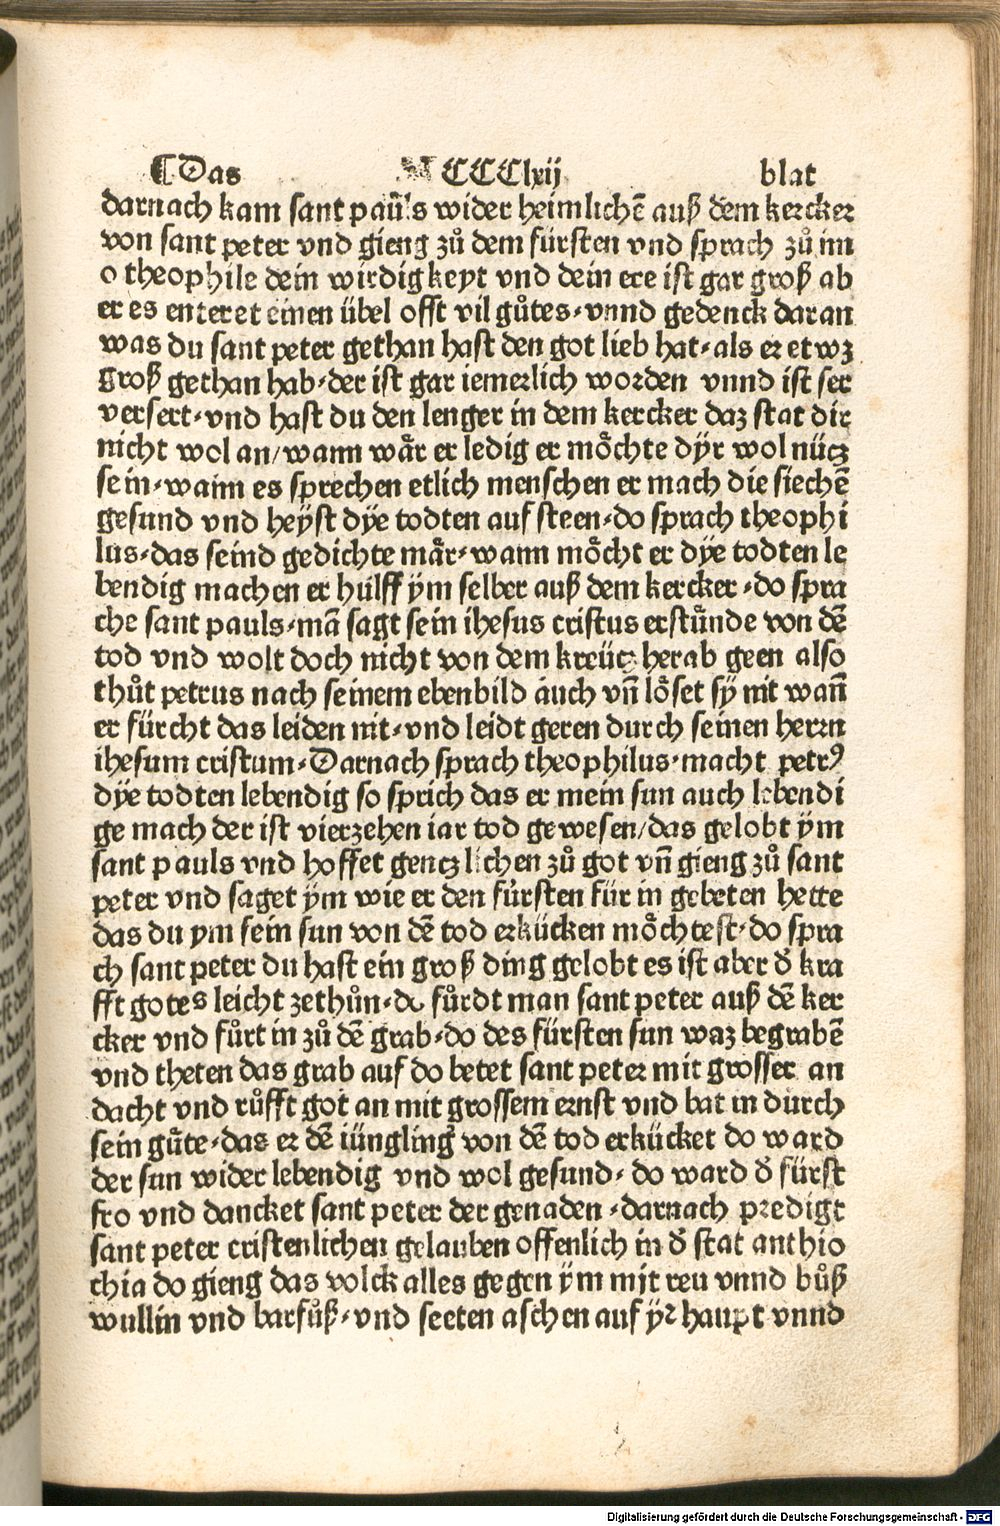 ¶Das CCCClxij blat
darnach kam sant pauls wider heimlichē auß dem kercker
von sant peter vnd gieng zů dem fürsten vnd sprach zů im
o theophile dein wirdigkeyt vnd dein ere ist gar groß ab
er es enteret einen übel offt vil gůtes·vnnd gedenck daran
was du sant peter gethan hast den got lieb hat·als er etwz
groß gethan hab·der ist gar iemerlich worden vnnd ist ser
versert·vnd hast du den lenger in dem kercker daz stat dir
nicht wol an/wann wår er ledig er möchte dÿr wol nücz
sein·wann es sprechen etlich menschen er mach die siechē
gesund vnd heÿst dÿe todten auf steen·do sprach theophi
lus·das seind gedichte mår·wann möcht er dÿe todten le
bendig machen er hülff ÿm selber auß dem kercker·do spra
che sant pauls·mā sagt sein ihesus cristus erstünde von dē
tod vnd wolt doch nicht von dem kreücz herab geen also
thůt petrus nach seinem ebenbild auch vñ löset sÿ nit wañ
er fürcht das leiden nit·vnd leidt geren durch seinen herrn
ihesum cristum·Darnach sprach theophilus·macht petrꝰ
dÿe todten lebendig so sprich das er mein sun auch lebendi
ge mach der ist vierzehen iar tod gewesen/das gelobt ÿm
sant pauls vnd hoffet genczlichen zů got vñ gieng zů sant
peter vnd saget ÿm wie er den fürsten für in gebeten hette
das du ym sein sun von dē tod erkücken möchtest·do spra
ch sant peter du hast ein groß ding gelobt es ist aber d̄ kra
fft gotes leicht zethůn·do fůrdt man sant peter auß dē ker
cker vnd fůrt in zů dē grab·do des fürsten sun waz begrabē
vnd theten das grab auf do betet sant peter mit grosser an
dacht vnd růfft got an mit grossem ernst vnd bat in durch
sein gůte·das er dē iüngling von dē tod erkücket do ward
der sun wider lebendig vnd wol gesund·do ward d̄ fürst
fro vnd dancket sant peter der genaden·darnach predigt
sant peter cristenlichen gelauben offenlich in d̄ stat anthio
chia do gieng das volck alles gegen ÿm mit reu vnnd bůß
wullin vnd barfůß·vnd seeten aschen auf ÿr haupt vnnd
Digitalisierung gefördert durch die Deutsche Forschungsgemeinschaft - DFG